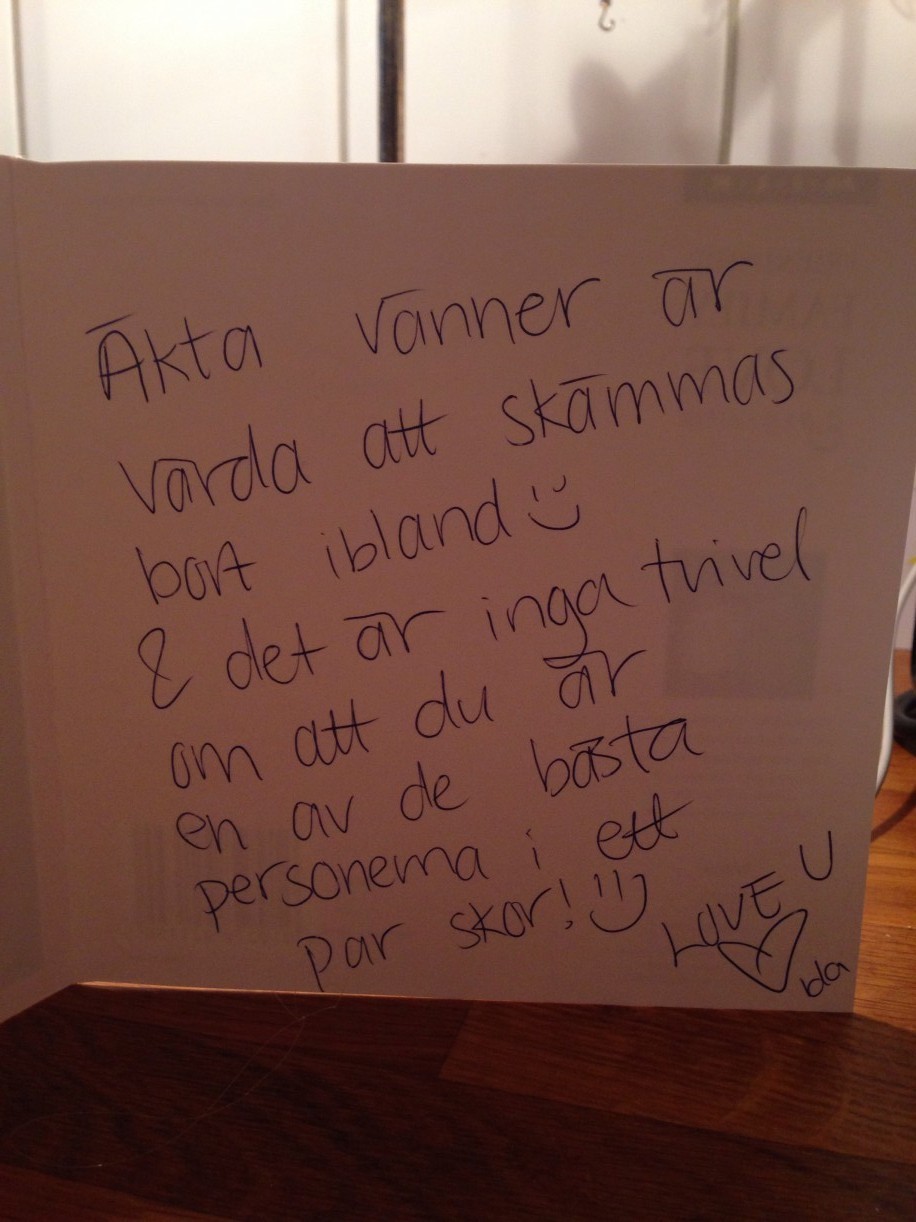 Äkta vänner är
värda att skämmas
bort ibland :)
& det är inga tvivel
om att du är
en av de bästa
personerna i ett
par skor! :)
LOVE U
♡ Ida